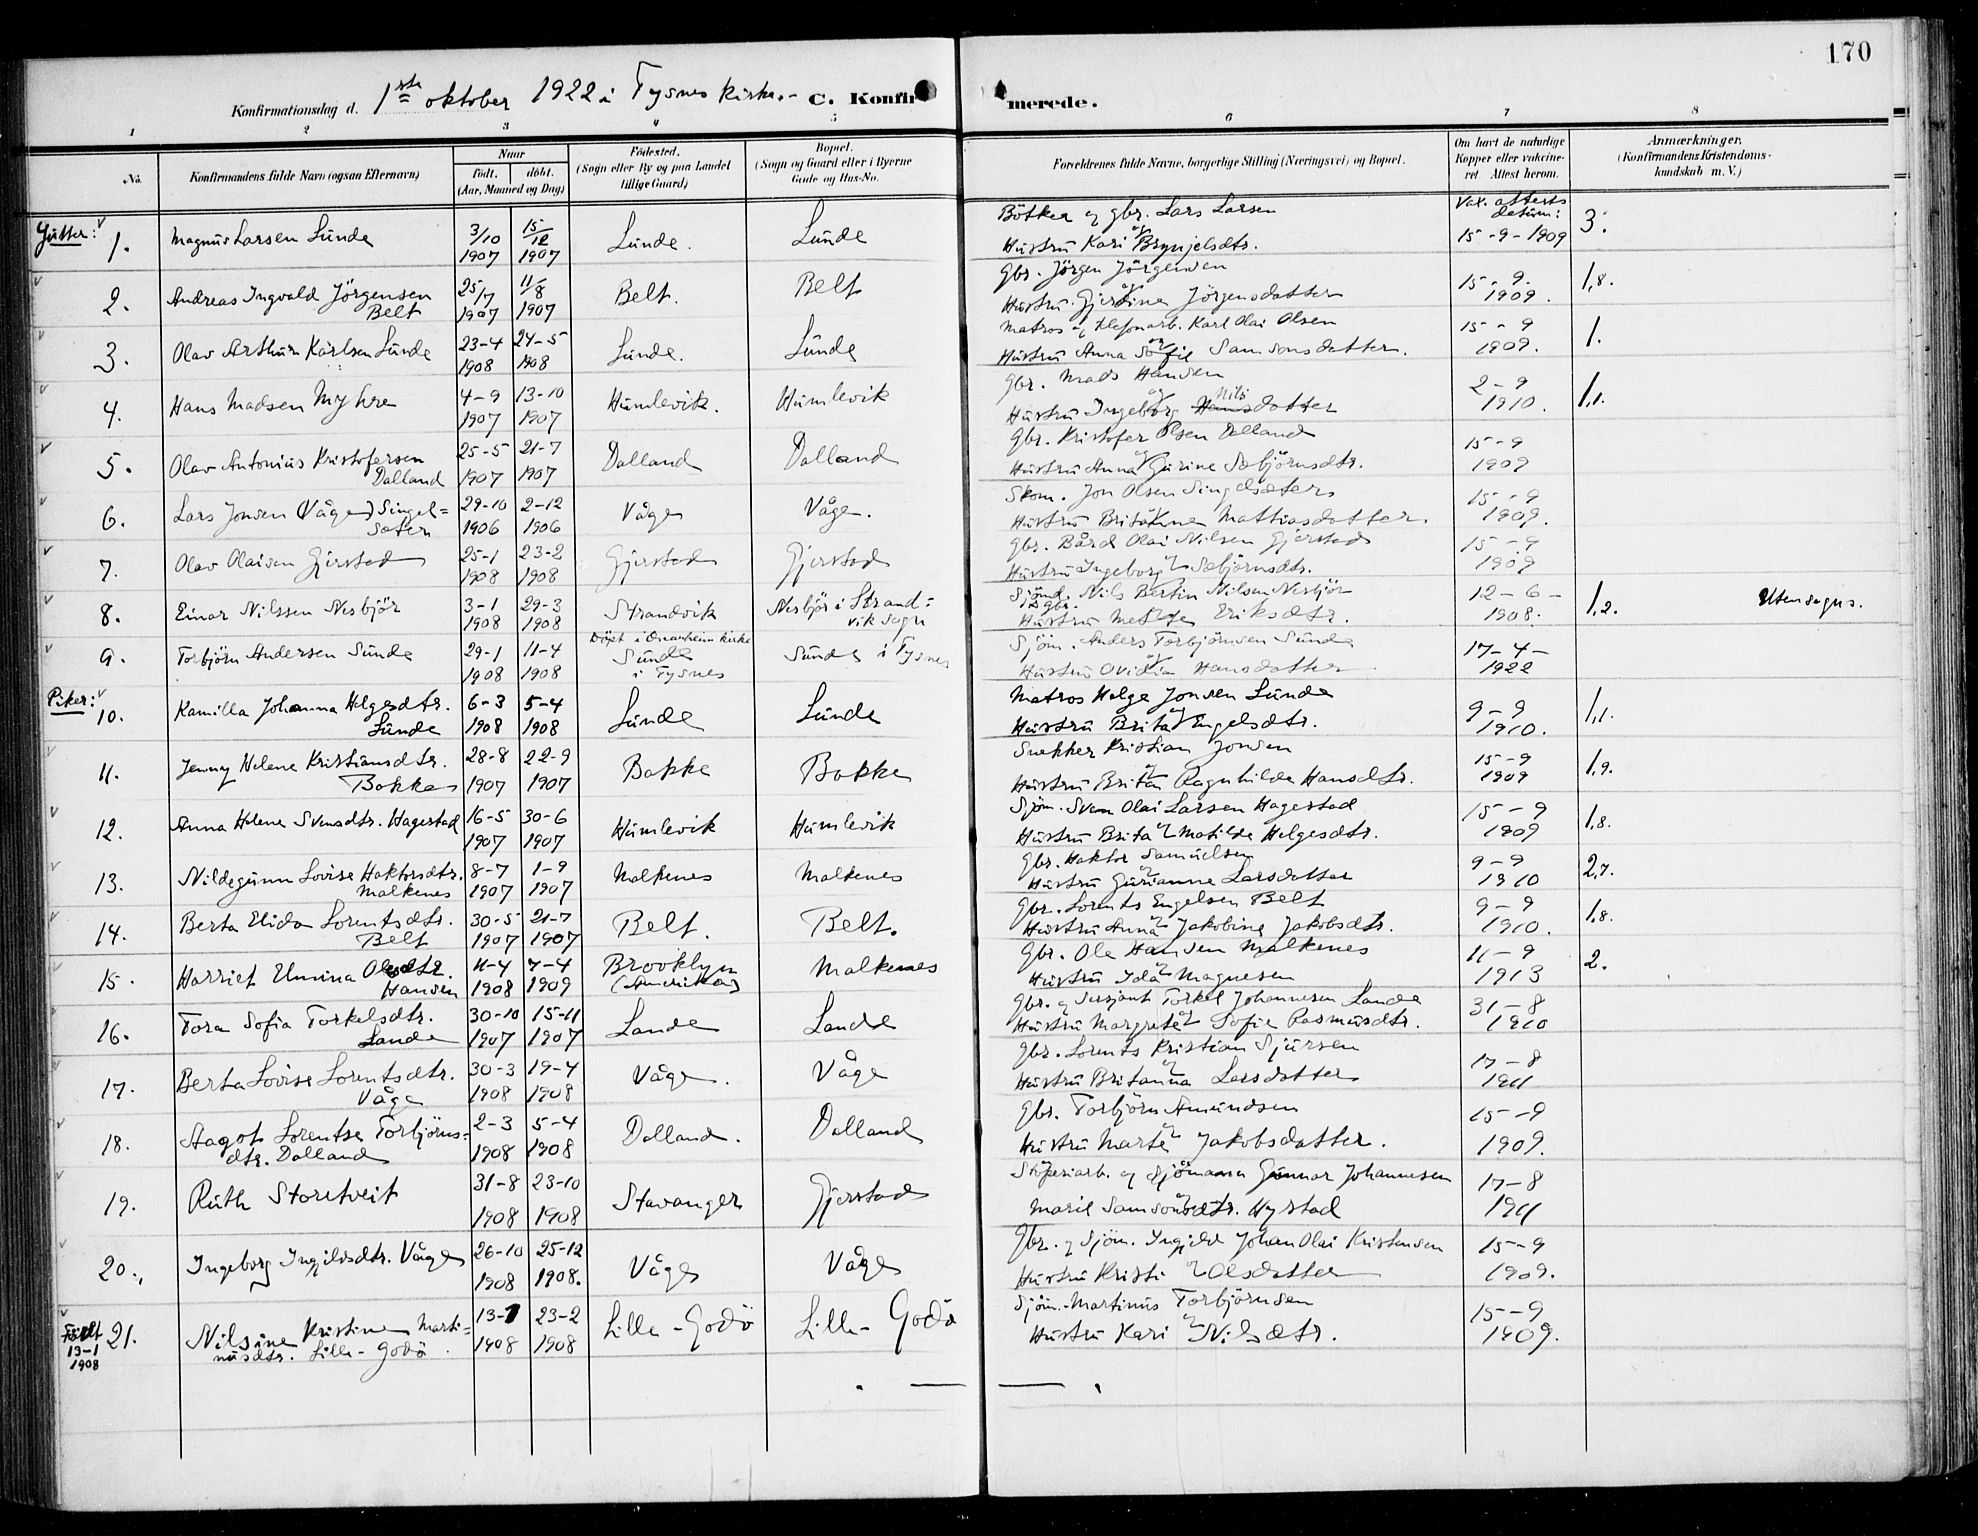 170
Konfirmationsdag d. 1ste oktober 1922 i Tysnes kirke.- C. Konfirmerede.
1 2 3 4 5 6 7 8
No. Konfirmandens fulde Navn (ogsaa Efternavn) Naar født. døbt. (Aar, Maaned og Dag) Fødested. (Sogn eller By og paa Landet tillige Gaard) Bopæl. (Sogn og Gaard eller i Byerne Gade og Hus-No. Forældrenes fulde Navne, borgerlige Stilling (Næringsvei) og Bopæl. Om havt de naturlige Kopper eller vaccineret. Attest herom. Anmærkninger. (Konfirmandens Kristendomskundskab m. V.)
Gutter: 1. Magnus Larsen Sunde 3/10 1907 15/12 1907 Sunde. Sunde Bötker og gbr. Lars Larsen og Hustru Kari Brynjelsdtr. Vax. attests datum: 15-9-1909 3.
2. Andreas Ingvald Jörgensen Belt 25/7 1907 11/8 1907 Belt. Belt Gbr. Jörgen Jörgensen og Hustru Gjerdine Jörgensdatter 15-9. 1909. 1,8.
3. Olav Arthur Karlsen Sunde 23-4 1908 24-5 1908 Sunde. Sunde Matros og Karl Olai Olsen og Hustru Anna Sofie Samsonsdatter. 15-9 1909. 1.
4. Hans Madsen Myhre 4-9 1907 13-10 1907 Humlevik. Humlevik Gbr. Mads Hansen og Hustru Ingeborg Nilsdatter 2-9 1910. 1,1.
5. Olav Antonius Kristofersen Dalland 25-5 1907 21-7 1907 Dalland Dalland Gbr. Kristofer Olsen Dalland og Hustru Anna Gurine Sæbjörnsdtr. 15-9 1909
6. Lars Jonsen (Våge) Singelsæter 29-10 1906 2-12 1906 Våge Våge. Skom. Jon Olsen Singelsæter og Hustru Mattiasdatter 15-9 1909.
7. Olav Olaisen Gjerstad 25-1 1908 23-2 1908 Gjerstad Gjerstad Gbr. Bård Olai Nilsen Gjerstad og Hustru Ingeborg Sæbjörnsdtr. 15-9 1909
8. Einar Nilssen Nesbjör 3-1 1908 29-3 1908 Strandvik Nesbjör i Strandvik sogn Sjömd. og gbr. Nils Bertin Nilsen Nesbjör Hustru Mette Eriksdtr. 12-6- 1908. 1,2. Utensogns.
9. Torbjörn Andersen Sunde 29-1 1908 11-4 1908 Döpt i Onarheim kirke Sunde i Tysnes Sunde i Tysnes Sjöm. Anders Torbjörnsen Sunde og Hustru Ovidia Hansdatter 17-4- 1922
Piker: 10. Kamilla Johanna Helgesdtr. Sunde 6-3 1908 5-4 1908 Sunde Sunde Matros Helge Jonsen Sunde og Hustru Brita Engelsdtr. 9-9 1910. 1,1.
11. Jenny Helene Kristiansdtr. Bakke 28-8 1907 22-9 1907 Bakke Bakke Snekker Kristian Jonsen og Hustru Brita Ragnhilda Hansdtr. 15-9 1909 1,9.
12. Anna Helene Svensdtr. Hagestad 16-5 1907 30-6 1907 Humlevik Humlevik Sjöm. Sven Olai Larsen Hagestad og Hustru Brita Matilde Helgesdtr. 15-9 1909 1,8.
13. Nildegunn Lovise Haktorsdtr. Malkenes 8-7 1907 1-9 1907 Malkenes Malkenes Gbr. Haktor Samuelsen og Hustru Gurianne Larsdatter 9-9 1910 2,7.
14. Berta Elida Lorentsdtr. Belt 30-5 1907 21-7 1907 Belt. Belt. Gbr. Lorents Engelsen Belt og Hustru Anna Jakobine Jakobsdtr. 9-9 1910. 1,8.
15. Harriet Unnina Olesdtr. Hansen 11-4 1908 7-4 1909 Brooklyn (Amerika) Malkenes Gbr. Ole Hansen Malkenes og Hustru Ida Magnesen 11-9 1913 2.
16. Tora Sofia Torkelsdtr. Lande 30-10 1907 15-11 1907 Lande Lande Gbr. og sersjant Torkel Johannesen Lande og Hustru Margrete Sofie Rasmusdtr. 31-8 1910
17. Berta Lovise Lorentsdtr. Våge 30-3 1908 19-4 1908 Våge. Våge Gbr. Lorents Kristian Sjursen og Hustru Britanna Larsdatter 17-8 1911
18. Aagot Lorentse Torbjörnsdtr. Dalland 2-3 1908 5-4 1908 Dalland. Dalland Gbr. Torbjörn Amundsen og Hustru Marte Jakobsdatter. 15-9 1909.
19. Ruth Storetveit 31-8 1908 23-10 1908 Stavanger Gjerstad Stöperiarb. og sjömann Gunnar Johannesen og Marie Samsonsdtr. Hystad 17-8 1911
20. Ingeborg Ingjeldsdtr. Våge 26-10 1908 25-12 1908. Våge Våge Gbr. og sjöm. Ingjeld Johan Olai Kristensen og Hustru Kristi Olsdatter 15-9 1909.
Födt 13-1 1908 21. Nilsine Kristine Martinusdtr. Lille-Godö 13-1 1908 23-2 1908 Lille-Godö Lille-Godö Sjöm. Martinus Torbjörnsen og Hustru Kari Nilsdtr. 15-9 1909.